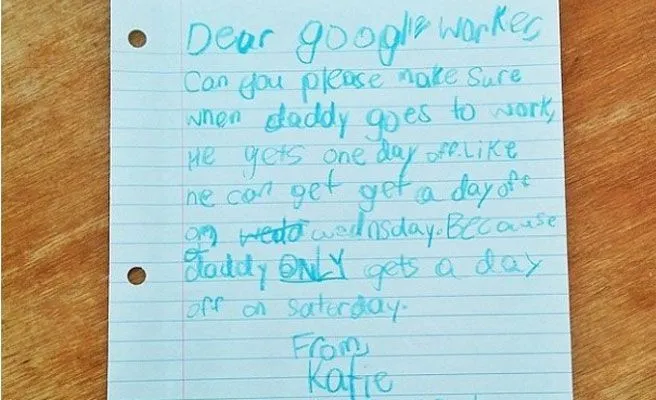 Dear google worker,
Can you please make sure
when daddy goes to work,
He gets one day off. Like
he can get get a day off
on wedo wednsday. Because
daddy ONLY gets a day
off on saterday.
From,
Katie